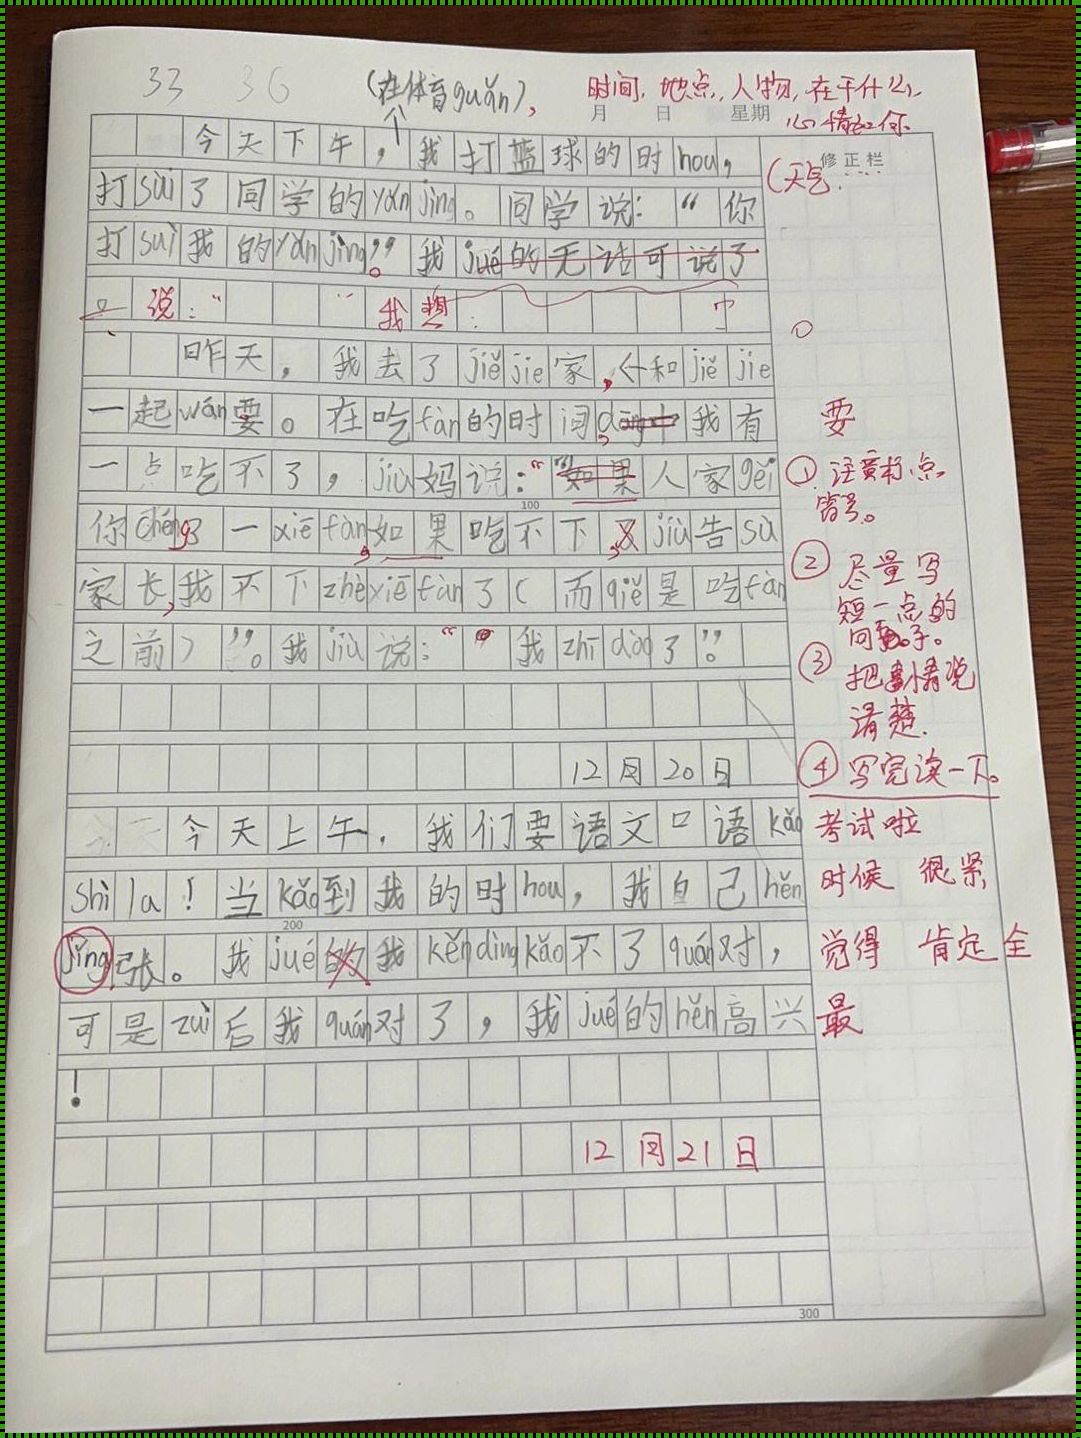 33 36 (在体育guǎn), 时间,地点,人物,在干什么,
月 日 星期 心情如何
今天下午,我打篮球的时hou,
修正栏
打suì了同学的yǎn jìng。同学说:“你 (天气.
打suì我的yǎn jìng。”我jué的无话可说了
。 说:“ ” 我想:
昨天,我去了jiě jie家,和jiě jie
一起wán要。在吃fàn的时间,我有 要
一点吃不了,jiù妈说:“如果人家gěi ①注意标点
符号。
100
你chéng了一xiē fàn,如果吃不下,又jiù告sù ②尽量写
短一点的
句子。
家长,我不下zhè xiē fàn了(而qiě是吃fàn
之前)”。我jiù说:“我zhī dào了”。 ③把事情说
清楚.
12月20日 ④写完读一下。
今天上午,我们要语文口语kǎo 考试啦
shì la!当kǎo到我的时hou,我自己hěn 时候 很紧
200
jǐng张。我jué的我kěn dìng kǎo不了quán对, 觉得 肯定 全
可是zuì后我quán对了,我jué的hěn高兴 最
!
12月21日
300